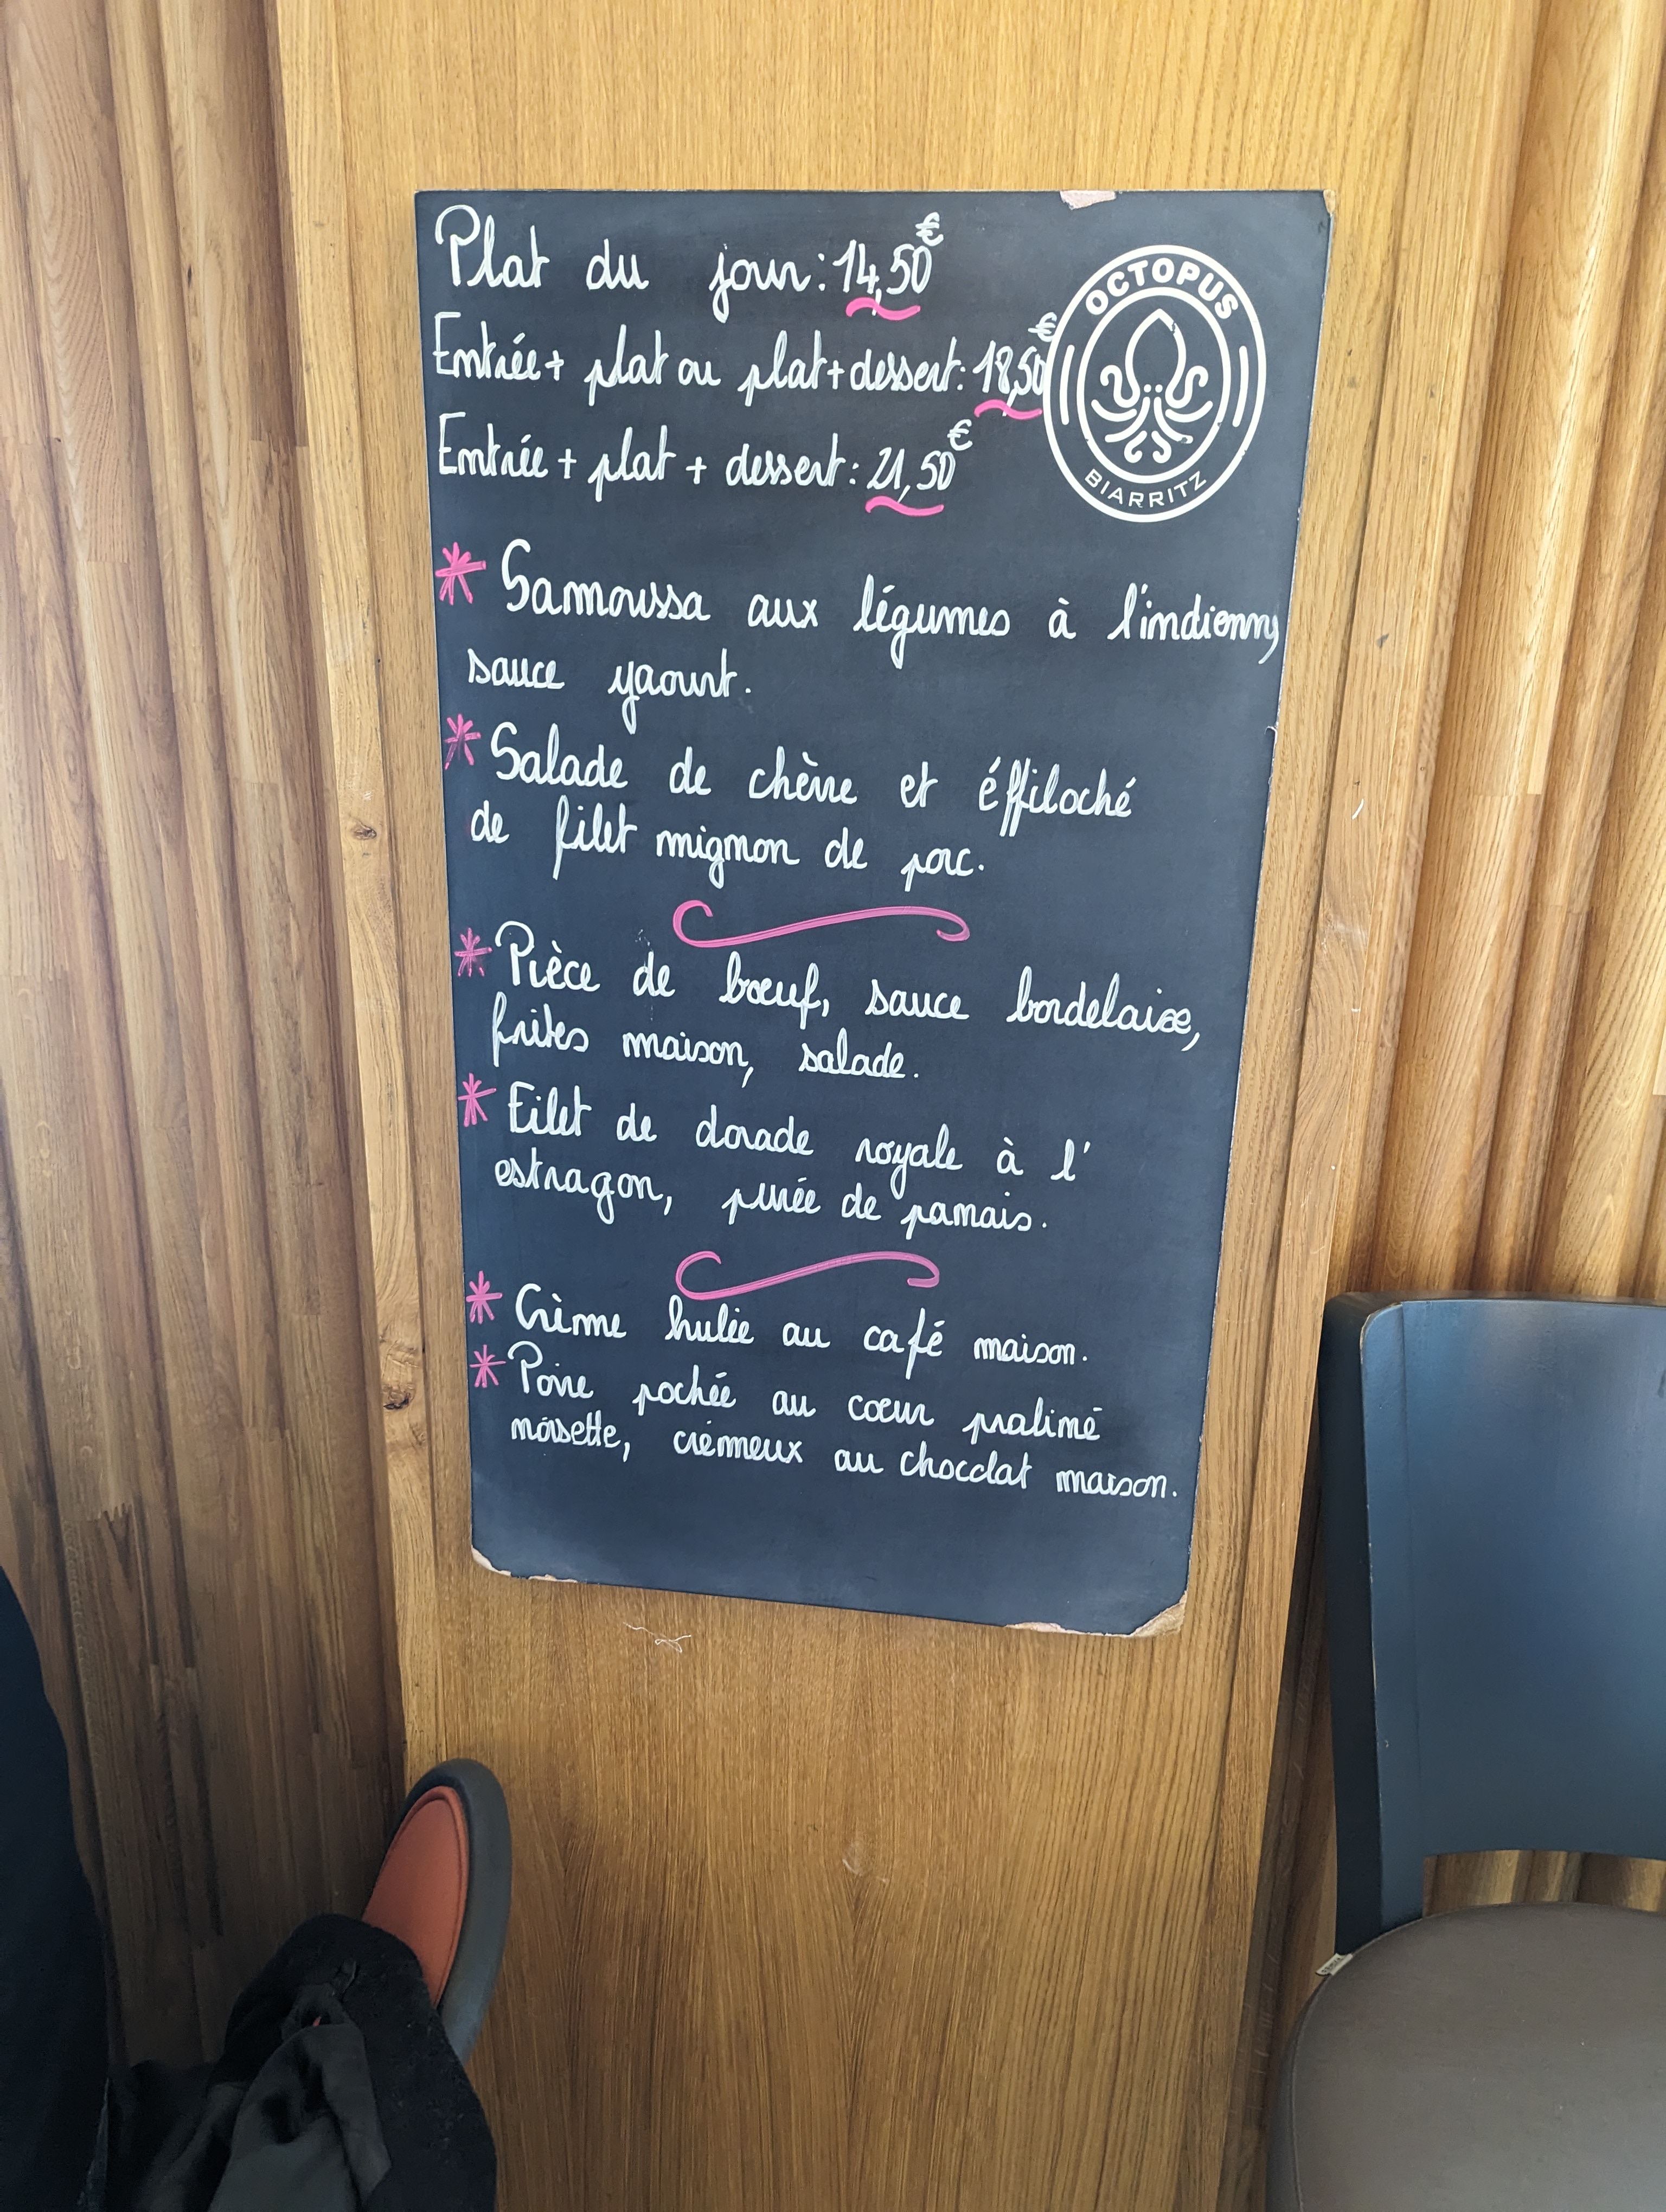 Plat du jour: 14,50€
Entrée + plat ou plat + dessert: 18,50€
Entrée + plat + dessert: 21,50€
OCTOPUS
BIARRITZ
* Samoussa aux légumes à l'indienne,
sauce yaourt.
* Salade de chèvre et éffiloché
de filet mignon de porc.
* Pièce de bœuf, sauce bordelaise,
frites maison, salade.
* Filet de dorade royale à l'
estragon, purée de panais.
* Crème brulée au café maison.
* Poire pochée au cœur praliné
noisette, crémeux au chocolat maison.